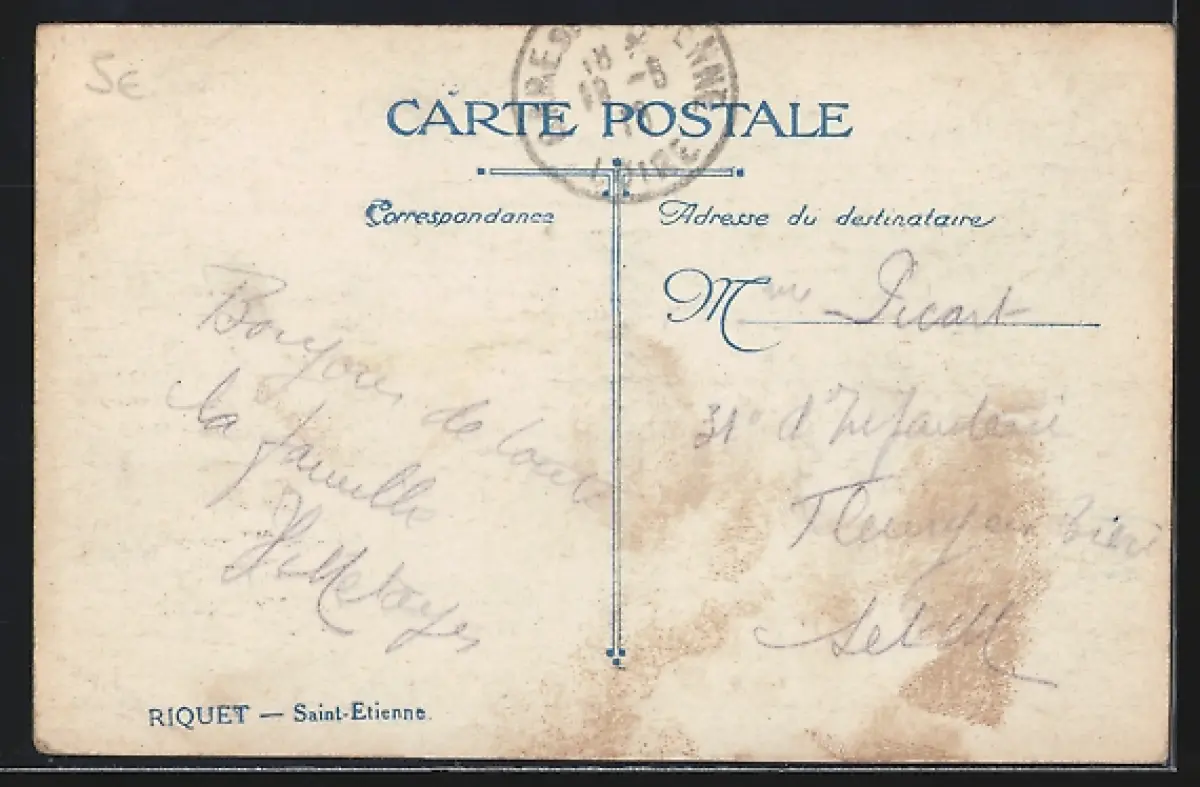 5€
18
-8
LOIRE
CARTE POSTALE
Correspondance
Adresse du destinataire
Mme Picart
Bonjour de toute
la famille
31e d'Infanterie
Fleury en Bière
S et M
RIQUET — Saint-Etienne.